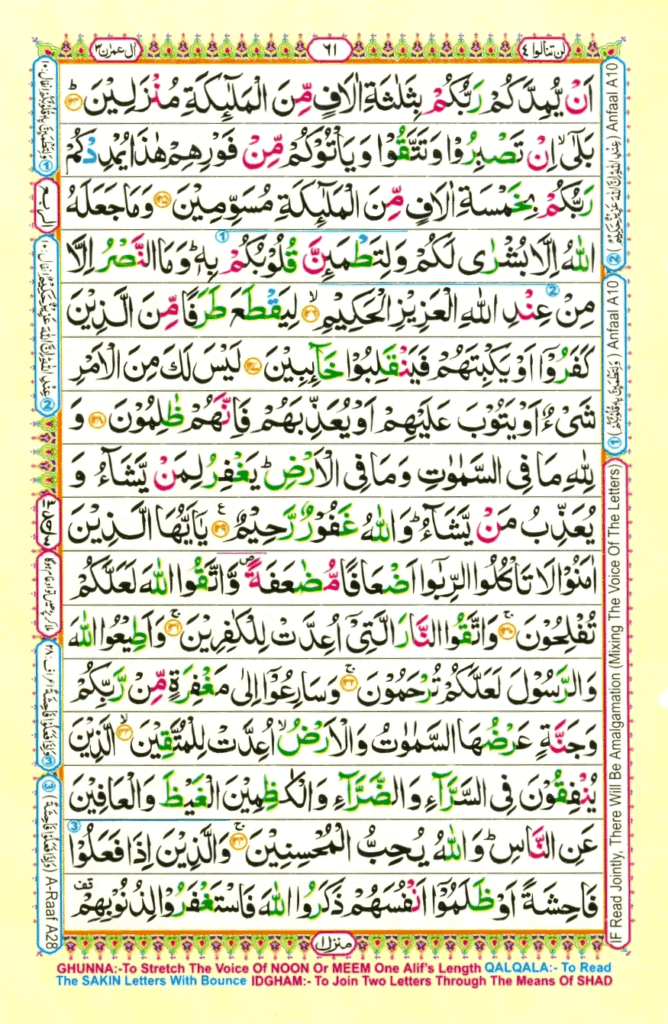 لن تنالوا ٤
٦١
اٰل عمرٰن ٣
اَنْ يُّمِدَّكُمْ رَبُّكُمْ بِثَلٰثَةِ اٰلَافٍ مِّنَ الْمَلٰٓئِكَةِ مُنْزَلِيْنَ ؕ﴿۱۲۴﴾
بَلٰٓى ۙ اِنْ تَصْبِرُوْا وَتَتَّقُوْا وَيَاْتُوْكُمْ مِّنْ فَوْرِهِمْ هٰذَا يُمْدِدْكُمْ
رَبُّكُمْ بِخَمْسَةِ اٰلَافٍ مِّنَ الْمَلٰٓئِكَةِ مُسَوِّمِيْنَ ﴿۱۲۵﴾ وَمَا جَعَلَهُ
اللّٰهُ اِلَّا بُشْرٰى لَكُمْ وَلِتَطْمَئِنَّ قُلُوْبُكُمْ بِهٖ ؕ وَمَا النَّصْرُ اِلَّا
مِنْ عِنْدِ اللّٰهِ الْعَزِيْزِ الْحَكِيْمِ ۙ﴿۱۲۶﴾ لِيَقْطَعَ طَرَفًا مِّنَ الَّذِيْنَ
كَفَرُوْۤا اَوْ يَكْبِتَهُمْ فَيَنْقَلِبُوْا خَآئِبِيْنَ ﴿۱۲۷﴾ لَيْسَ لَكَ مِنَ الْاَمْرِ
شَىْءٌ اَوْ يَتُوْبَ عَلَيْهِمْ اَوْ يُعَذِّبَهُمْ فَاِنَّهُمْ ظٰلِمُوْنَ ﴿۱۲۸﴾ وَ
لِلّٰهِ مَا فِى السَّمٰوٰتِ وَمَا فِى الْاَرْضِ ؕ يَغْفِرُ لِمَنْ يَّشَآءُ وَ
يُعَذِّبُ مَنْ يَّشَآءُ ؕ وَاللّٰهُ غَفُوْرٌ رَّحِيْمٌ ﴿۱۲۹﴾ يٰۤاَيُّهَا الَّذِيْنَ
اٰمَنُوْا لَا تَاْكُلُوا الرِّبٰٓوا اَضْعَافًا مُّضٰعَفَةً ۪ وَّاتَّقُوا اللّٰهَ لَعَلَّكُمْ
تُفْلِحُوْنَ ۚ﴿۱۳۰﴾ وَاتَّقُوا النَّارَ الَّتِىْۤ اُعِدَّتْ لِلْكٰفِرِيْنَ ۚ﴿۱۳۱﴾ وَاَطِيْعُوا اللّٰهَ
وَالرَّسُوْلَ لَعَلَّكُمْ تُرْحَمُوْنَ ۚ﴿۱۳۲﴾ وَسَارِعُوْۤا اِلٰى مَغْفِرَةٍ مِّنْ رَّبِّكُمْ
وَجَنَّةٍ عَرْضُهَا السَّمٰوٰتُ وَالْاَرْضُ ۙ اُعِدَّتْ لِلْمُتَّقِيْنَ ۙ﴿۱۳۳﴾ الَّذِيْنَ
يُنْفِقُوْنَ فِى السَّرَّآءِ وَالضَّرَّآءِ وَالْكٰظِمِيْنَ الْغَيْظَ وَالْعَافِيْنَ
عَنِ النَّاسِ ؕ وَاللّٰهُ يُحِبُّ الْمُحْسِنِيْنَ ۚ﴿۱۳۴﴾ وَالَّذِيْنَ اِذَا فَعَلُوْا
فَاحِشَةً اَوْ ظَلَمُوْۤا اَنْفُسَهُمْ ذَكَرُوا اللّٰهَ فَاسْتَغْفَرُوْا لِذُنُوْبِهِمْ
منزل ١
Anfaal A10
Anfaal A10
IF Read Jointly, There Will Be Amalgamation (Mixing The Voice Of The Letters)
A-Raaf A28
GHUNNA:-To Stretch The Voice Of NOON Or MEEM One Alif's Length QALQALA:- To Read
The SAKIN Letters With Bounce IDGHAM:- To Join Two Letters Through The Means Of SHAD